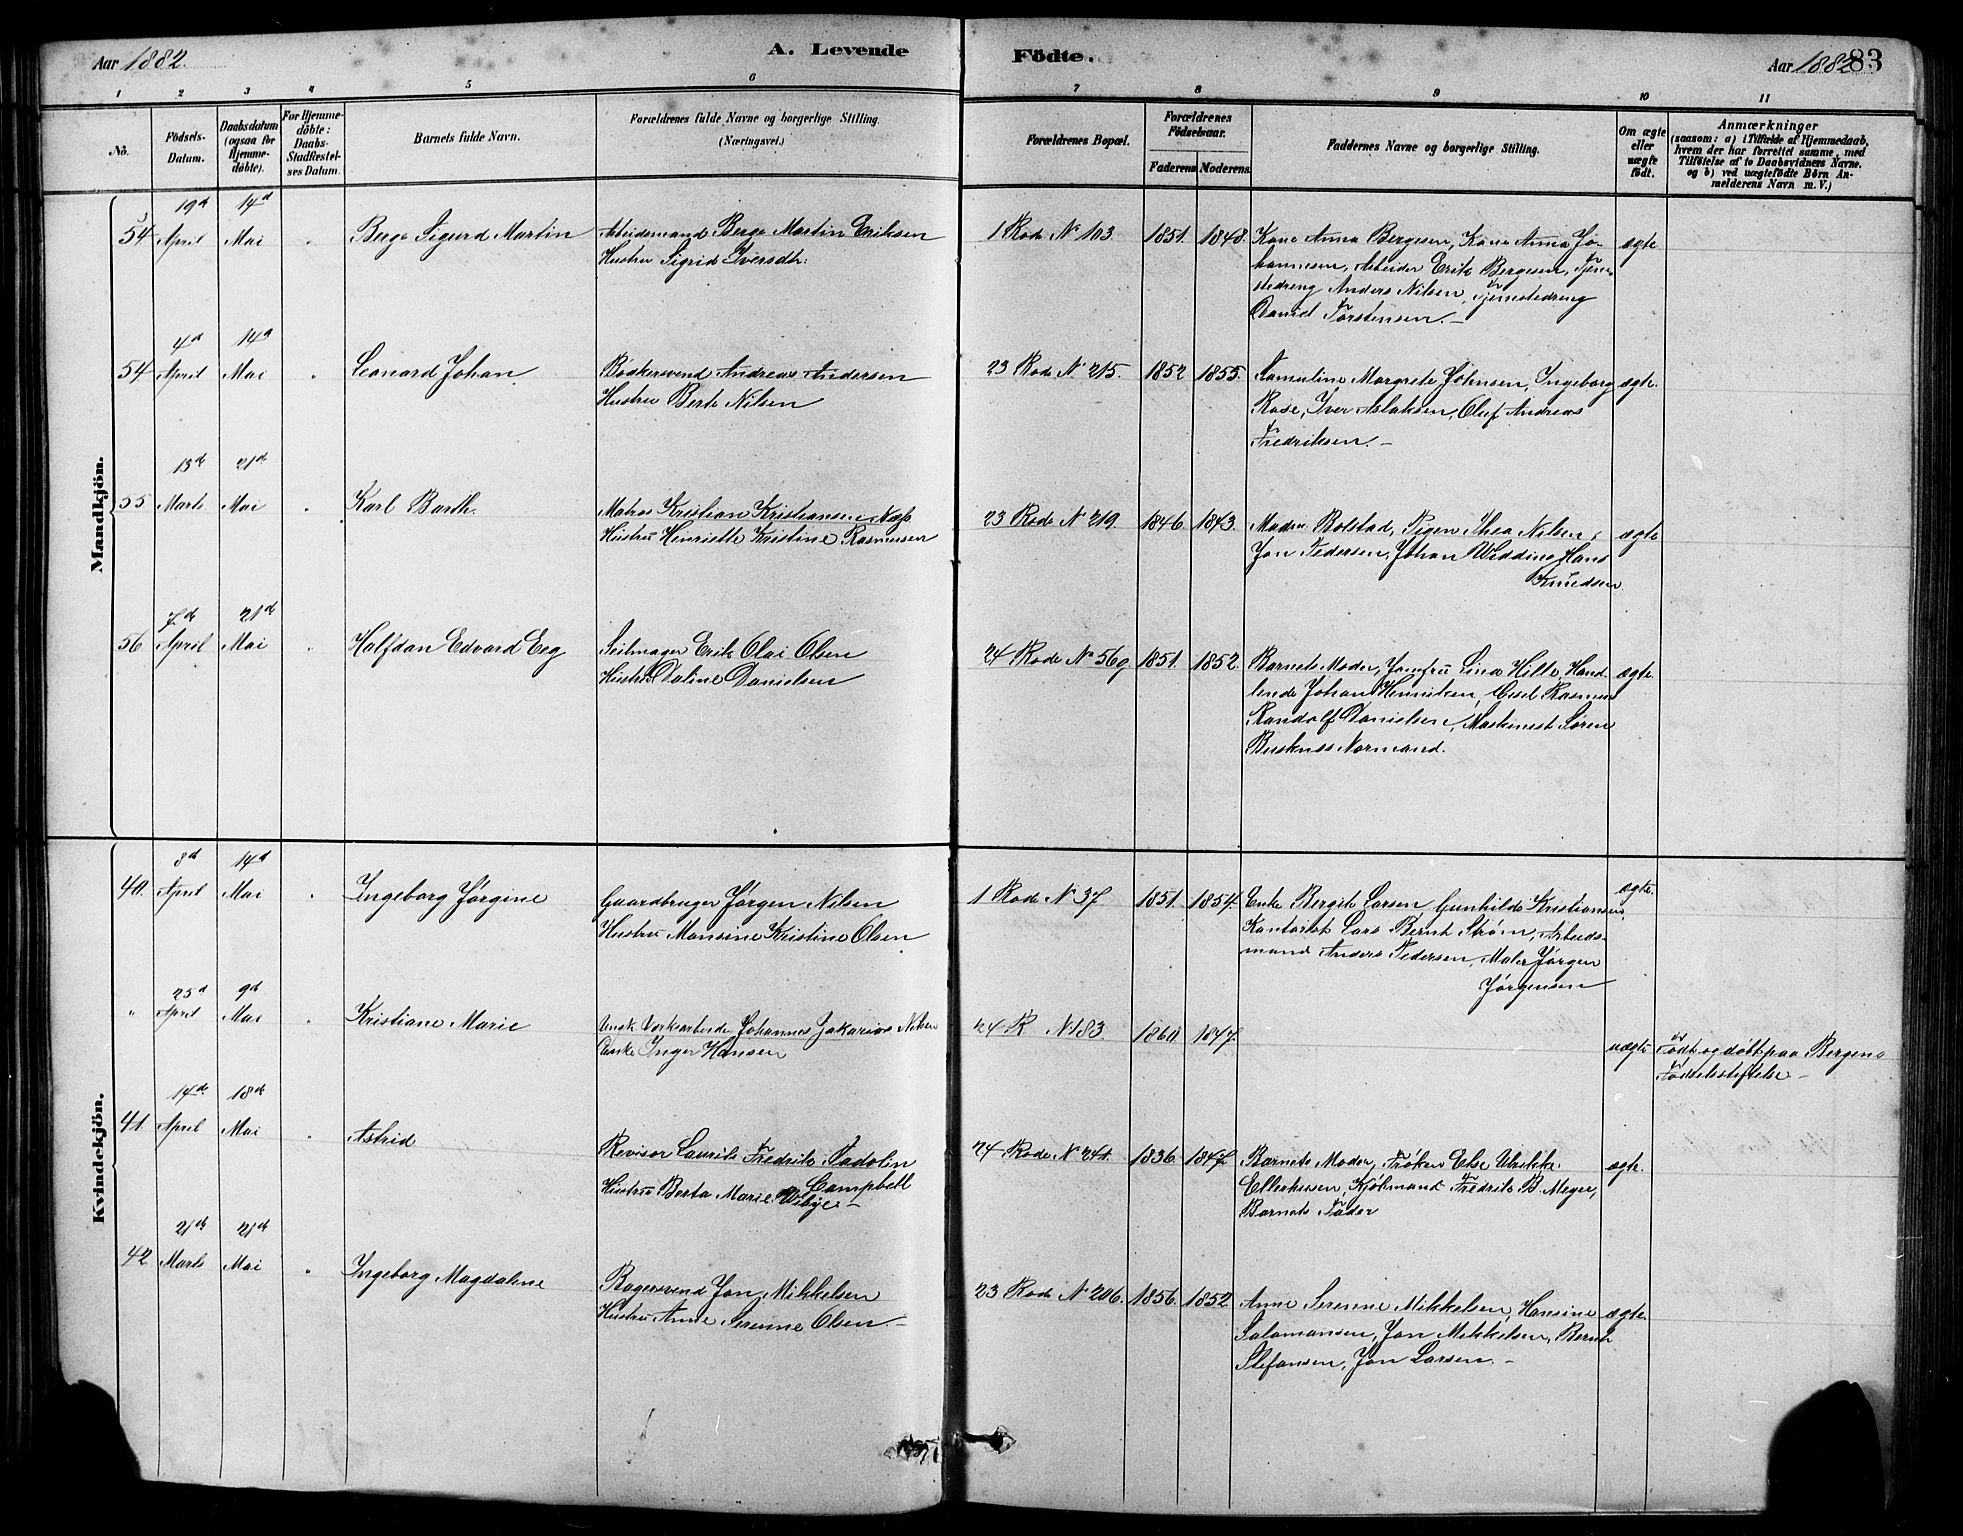 Aar 1882.
A. Levende
Födte.
Aar 1882
83
1 2 3 4 5 6 7 8 9 10 11
No.
Födsels-
Datum.
Daabsdatum
(ogsaa for
Hjemme-
döbte).
For Hjemme-
döbte:
Daabs-
Stadfæstel-
ses Datum.
Barnets fulde Navn.
Forældrenes fulde Navne og borgerlige Stilling.
(Næringsvei.)
Forældrenes Bopæl.
Forældrenes
Födselsaar.
Faderens Moderens
Faddernes Navne og borgerlige Stilling.
Om ægte
eller
uægte
födt.
Anmærkninger
(saasom: a) i Tilfælde af Hjemmedaab,
hvem der har forrettet samme, med
Tilföielse af to Daabsvidners Navne,
og b) ved uægtefödte Börn An-
melderens Navn m. V.)
Mandkjön.
19d 14d
54 April Mai " Berge Sigurd Martin
Arbeidsmand Berge Martin Eriksen
Hustru Sigrid Iversdtr:
1 Rode No 103. 1851. 1848.
Kone Anna Bergesen, Kone Anna Jo-
hannesen, Arbeider Erik Bergesen, Tjene-
stedreng Anders Nilsen, Tjenestedreng
Daniel Torstensen. —
ægte
4d 14d
54 April Mai " Leonard Johan
Bødkersvend Andreas Andersen
Hustru Berte Nilsen
23 Rode N 215. 1852 1855.
Samuline Margrete Johnsen, Ingeborg
Rase, Iver Aslaksen, Oluf Andreas
Fredriksen. —
ægte.
13de 21de
55 Marts Mai " Karl Barth.
Matros Kristian Kristiansen Næss
Hustru Henriette Kristine Rasmussen
23 Rode N 219. 1846. 1843.
Mad. Bolstad, Pigen Thea Nilsen,
Jon Pedersen, Johan Wedding Hans
Knudsen
ægte
7de 21de
56 April Mai " Halfdan Edvard Eeg
Seilmager Erik Olai Olsen
Hustru Daline Danielsen
24 Rode No 569 1851. 1852.
Barnets Moder, Jomfru Lina Hille, Hand-
lende Johan Henriksen, Gsel Rasmus
Randolf Danielsen, Maskinist Søren
Busknes Normand.
ægte.
Kvindekjön.
8d 14d
40. April Mai " Ingeborg Jørgine
Gaardbruger Jørgen Nilsen
Hustru Monsine Kristine Olsen
1 Rode N 37 1851. 1854.
Enke Bergite Larsen Gunhilde Kristiansen,
Kontorist Lars Bernt Strøm, Arbeids-
mand Anders Pedersen, Maler Jørgen
Jørgensen
ægte.
25d 9d
" April Mai " Kristiane Marie
Ungk Værksarbeide Johannes Zakarias Nilsen
Enke Inger Hansen
24 R N 183. 1860. 1847.
uægte
Født og døbt paa Bergens
Fødselsstiftelse —
14de 18de
41. April Mai " Astrid
Revisor Laurits Fredrik Sadolin
Campbell
Hustru Berta Marie Wibye —
24 Rode N 241. 1836. 1847.
Barnets Moder, Frøken Else Ulrikke
Ellerhusen, Kjøbmand Fredrik B. Meyer,
Barnets Fader
ægte.
21de 21de
42 Marts Mai " Ingeborg Magdalene
Bagersvend Jon Mikkelsen
Hustru Anne Serenne Olsen —
23 Rode N 206. 1856. 1852.
Anne Serenne Mikkelsen, Hansine
Salomonsen, Jon Mikkelsen, Bernt
Stefansen, Jon Larsen. —
ægte.